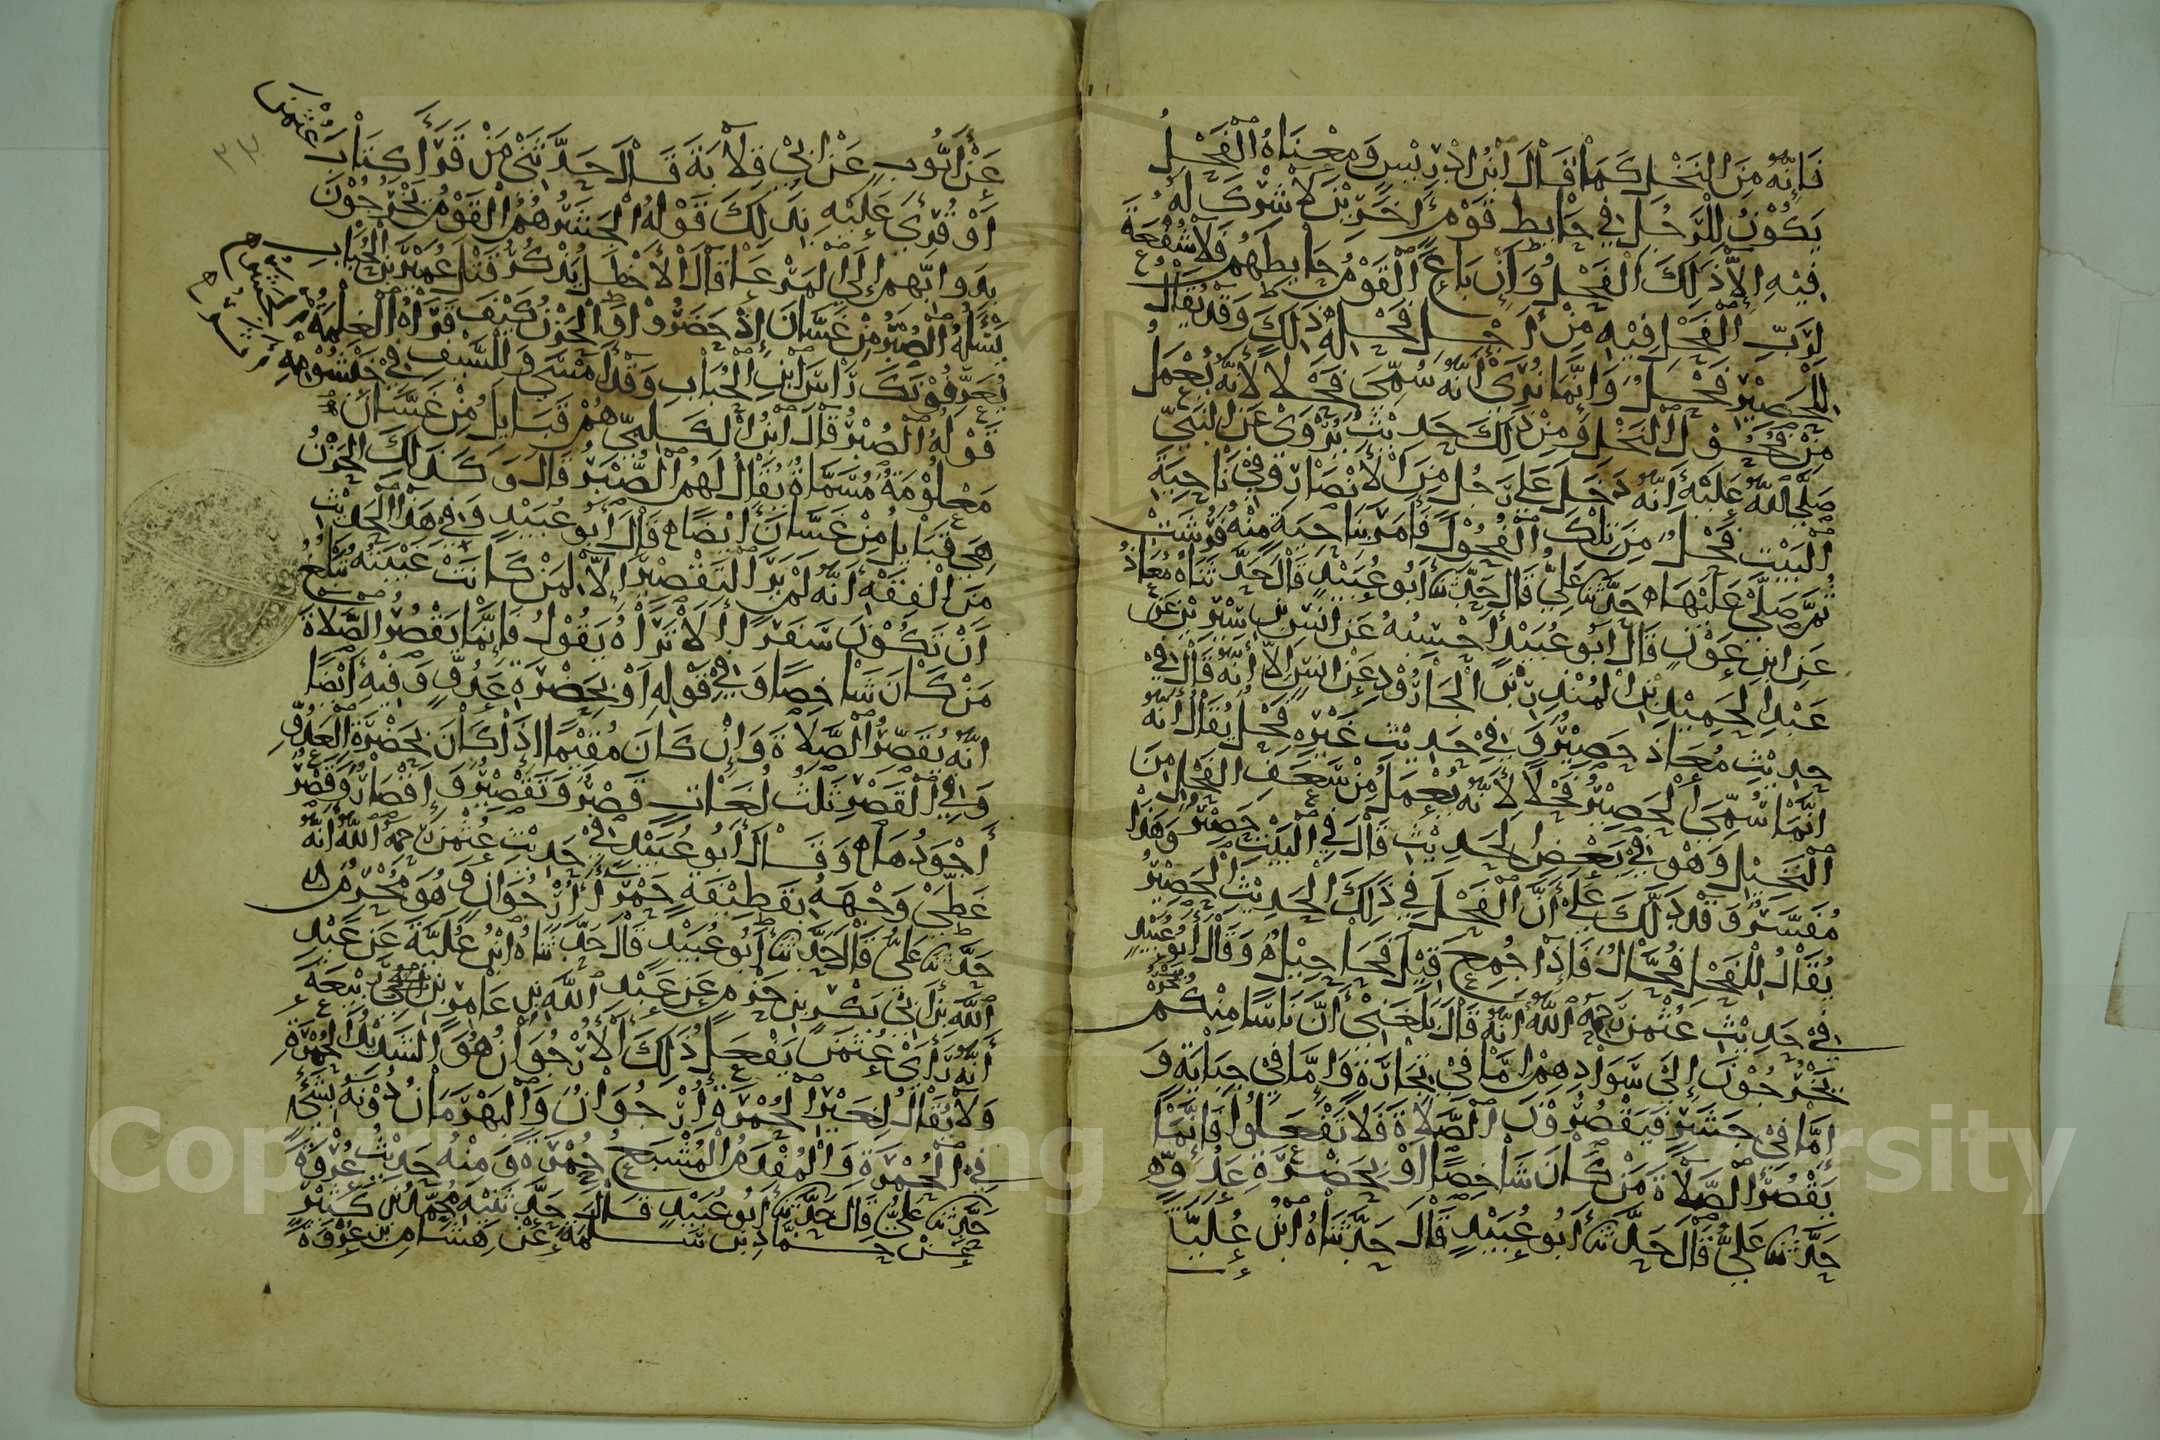 فَإِنَّهُ مِنَ النَّخْلِ كَمَا قَالَ ابْنُ إِدْرِيْسَ وَمَعْنَاهُ الْفَحْلُ
يَكُوْنُ لِلرَّجُلِ فِي حَايِطِ قَوْمٍ آخَرِيْنَ لَا شِرْكَ لَهُ
فِيْهِ إِلَّا ذَلِكَ الْفَحْلُ وَإِنْ بَاعَ الْقَوْمُ حَايِطَهُم فَلَا شُفْعَةَ
لِرَبِّ الْفَحْلِ فِيْهِ مِنْ أَجْلِ فَحْلِهِ ذَلِكَ وَقَدْ يُقَالُ
لِلْحَصِيْرِ فَحْلٌ وَإِنَّمَا نُرَى أَنَّهُ سُمِّيَ فَحْلًا لِأَنَّهُ يُعْمَلُ
مِنْ فُحُوْلِ النَّخْلِ وَمِنْ ذَلِكَ حَدِيْثٌ يُرْوَى عَنِ النَّبِيِّ
صَلَّى اللهُ عَلَيْهِ أَنَّهُ دَخَلَ عَلَى رَجُلٍ مِنَ الْأَنْصَارِ وَفِيْ نَاحِيَةِ
الْبَيْتِ فَحْلٌ مِنْ تِلْكَ الْفُحُوْلِ فَأَمَرَ بِنَاحِيَةٍ مِنْهُ فَرُشَّتْ
ثُمَّ صَلَّى عَلَيْهَا حَدَّثَنَا عَلِيٌّ قَالَ حَدَّثَنَا أَبُو عُبَيْدٍ قَالَ حَدَّثَنَاهُ مُعَاذٌ
عَنِ ابْنِ عَوْنٍ قَالَ أَبُو عُبَيْدٍ أَحْسِبُهُ عَنْ أَنَسِ بْنِ سِيْرِيْنَ عَنْ
عَبْدِ الْحَمِيْدِ بْنِ الْمُنْذِرِ بْنِ الْجَارُوْدِ عَنْ أَنَسٍ إِلَّا أَنَّهُ قَالَ فِيْ
حَدِيْثِ مُعَاذٍ حَصِيْرٌ وَفِيْ حَدِيْثِ غَيْرِهِ فَحْلٌ يُقَالُ أَنَّهُ
إِنَّمَا سُمِّيَ الْحَصِيْرُ فَحْلًا لِأَنَّهُ يُعْمَلُ مِنْ سَعَفِ الْفَحْلِ مِنَ
النَّخِيْلِ وَهْوَ فِيْ بَعْضِ الْحَدِيْثِ قَالَ فِي الْبَيْتِ حَصِيْرٌ وَهَذَا
مُفَسَّرٌ وَقَدْ دَلَّكَ عَلَى أَنَّ الْفَحْلَ فِي ذَلِكَ الْحَدِيْثِ الْحَصِيْرُ
يُقَالُ لِلْفَحْلِ فُحَّالٌ فَإِذَا جُمِعَ قِيْلَ فَحَاحِيْلُ وَقَالَ أَبُو عُبَيْدٍ
فِيْ حَدِيْثِ عُثْمٰنَ رَحِمَهُ اللهُ أَنَّهُ قَالَ بَلَغَنِيْ أَنَّ نَاسًا مِنْكُمْ
يَخْرُجُوْنَ إِلَى سَوَادِهِمْ إِمَّا فِيْ تِجَارَةٍ وَإِمَّا فِيْ جِبَايَةٍ وَ
إِمَّا فِيْ جَشَرٍ فَيَقْصُرُوْنَ الصَّلَاةَ فَلَا تَفْعَلُوا فَإِنَّمَا
يَقْصُرُ الصَّلَاةَ مَنْ كَانَ شَاخِصًا أَوْ بِحَضْرَةِ عَدُوٍّ
حَدَّثَنَا عَلِيٌّ قَالَ حَدَّثَنَا أَبُو عُبَيْدٍ قَالَ حَدَّثَنَاهُ ابْنُ عُلَيَّةَ
عَنْ أَيُّوبَ عَنْ أَبِيْ قِلَابَةَ قَالَ حَدَّثَنِيْ مَنْ قَرَأَ كِتَابَ عُثْمٰنَ
أَوْ قُرِئَ عَلَيْهِ بِذَلِكَ قَوْلُهُ الْجَشَرُ هُمُ الْقَوْمُ يَخْرُجُوْنَ
بِدَوَابِّهِم إِلَى الْمَرْعَا قَالَ الْأَخْطَلُ يَذْكُرُ قَتْلَ عُمَيْرِ بْنِ الْحُبَابِ
يَسْأَلُهُ الصُّبْرُ مِنْ غَسَّانَ إِذْ حَضَرُوْا وَالْحَزْنُ كَيْفَ قَرَاهُ الْغِلْمَةُ الْجَشَرُ
يُعَرِّفُوْنَكَ رَأْسَ ابْنِ الْحُبَابِ وَقَدْ أَمْسَى وَلِلسَّيْفِ فِي خَيْشُوْمِهِ أَثَرُ
قَوْلُهُ الصُّبْرُ قَالَ ابْنُ الْكَلْبِيِّ هُمْ قَبَايِلُ مِنْ غَسَّانَ
مَعْلُوْمَةٌ مُسَمَّاةٌ يُقَالُ لَهُمُ الصُّبْرُ قَالَ وَكَذَلِكَ الْحَزْنُ
هِيَ قَبَايِلُ مِنْ غَسَّانَ أَيْضًا قَالَ أَبُو عُبَيْدٍ وَفِيْ هَذَا الْحَدِيْثِ
مِنَ الْفِقْهِ أَنَّهُ لَمْ يَرَ التَّقْصِيْرَ إِلَّا لِمَنْ كَانَتْ غَيْبَتُهُ تَبْلُغُ
أَنْ تَكُوْنَ سَفَرًا أَلَا تَرَاهُ يَقُوْلُ فَإِنَّمَا يَقْصُرُ الصَّلَاةَ
مَنْ كَانَ شَاخِصًا وَفِيْ قَوْلِهِ أَوْ بِحَضْرَةِ عَدُوٍّ وَفِيْهِ أَيْضًا
أَنَّهُ يُقَصِّرُ الصَّلَاةَ وَإِنْ كَانَ مُقِيْمًا إِذَا كَانَ بِحَضْرَةِ الْعَدُوِّ
وَفِي الْقَصْرِ ثَلٰثُ لُغَاتٍ قَصْرٌ وَتَقْصِيْرٌ وَإِقْصَارٌ وَقَصْرٌ
أَجْوَدُهَا وَقَالَ أَبُو عُبَيْدٍ فِيْ حَدِيْثِ عُثْمٰنَ رَحِمَهُ اللهُ أَنَّهُ
غَطَّى وَجْهَهُ بِقَطِيْفَةٍ حَمْرَاءَ أُرْجُوَانٍ وَهُوَ مُحْرِمٌ
حَدَّثَنَا عَلِيٌّ قَالَ حَدَّثَنَا أَبُو عُبَيْدٍ قَالَ حَدَّثَنَاهُ ابْنُ عُلَيَّةَ عَنْ عَبْدِ
اللهِ بْنِ أَبِيْ بَكْرِ بْنِ حَزْمٍ عَنْ عَبْدِ اللهِ بْنِ عَامِرِ بْنِ رَبِيْعَةَ
أَنَّهُ رَأَىْ عُثْمٰنَ يَفْعَلُ ذَلِكَ الْأُرْجُوَانُ هُوَ الشَّدِيْدُ الْحُمْرَةِ
وَلَا يُقَالُ لِغَيْرِ الْحُمْرَةِ أُرْجُوَانٌ وَالْبَهْرَمَانُ دُوْنَهُ بِشَيْءٍ
فِي الْحُمْرَةِ وَالْمُفْدَمُ الْمُشْبَعُ حُمْرَةً وَمِنْهُ حَدِيْثُ عُرْوَةَ
حَدَّثَنَا عَلِيٌّ قَالَ حَدَّثَنَا أَبُو عُبَيْدٍ قَالَ حَدَّثَنِيْهِ مُحَمَّدُ بْنُ كَثِيْرٍ
عَنْ حَمَّادِ بْنِ سَلَمَةَ عَنْ هِشَامِ بْنِ عُرْوَةَ